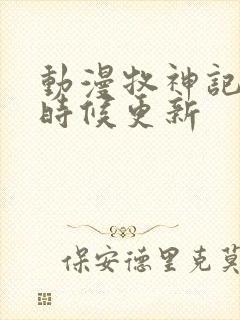 動漫牧神記
時候更新
保安德里克莫